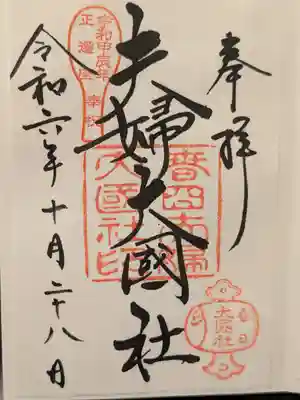 奉拝
夫婦大國社
令和六年十月二十八日
令和甲辰年
正遷座
奉祝
春日夫婦
大國社印
春日
大国社